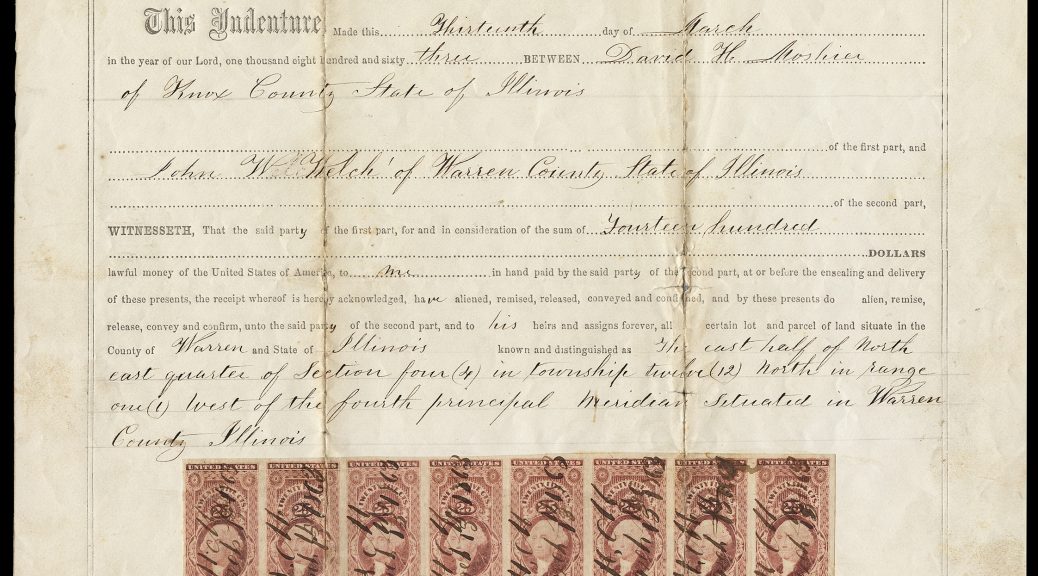 This Indenture, Made this Thirteenth day of March
in the year of our Lord, one thousand eight hundred and sixty three BETWEEN David H. Moshier
of Knox County State of Illinois
of the first part, and
John W. Welch of Warren County State of Illinois
of the second part,
WITNESSETH, That the said party of the first part, for and in consideration of the sum of Fourteen hundred
DOLLARS
lawful money of the United States of America, to me in hand paid by the said party of the second part, at or before the ensealing and delivery
of these presents, the receipt whereof is hereby acknowledged, have aliened, remised, released, conveyed and confirmed, and by these presents do alien, remise,
release, convey and confirm, unto the said party of the second part, and to his heirs and assigns forever, all certain lot and parcel of land situate in the
County of Warren and State of Illinois known and distinguished as The east half of North
east quarter of Section four (4) in township twelve (12) North in range
one (1) West of the fourth principal Meridian Situated in Warren
County Illinois
UNITED STATES UNITED STATES UNITED STATES UNITED STATES UNITED STATES UNITED STATES UNITED STATES UNITED STATES